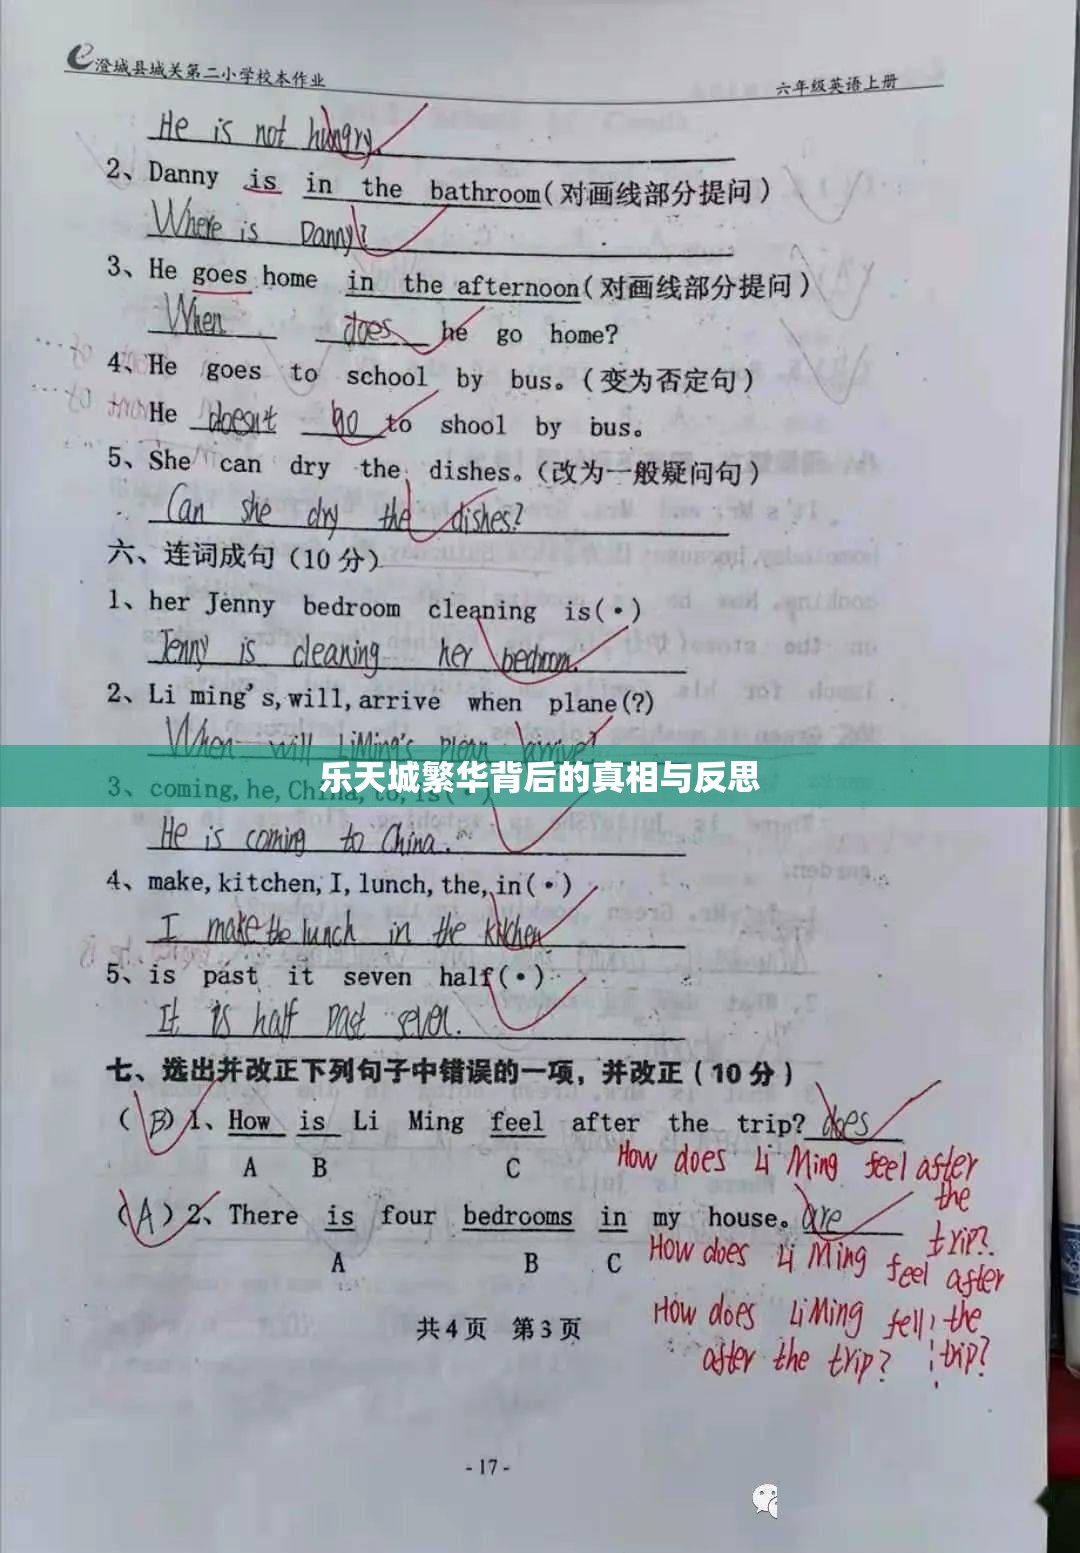 澄城县城关第二小学校本作业 六年级英语上册
He is not hungry.
2、Danny is in the bathroom(对画线部分提问)
Where is Danny?
3、He goes home in the afternoon(对画线部分提问)
When does he go home?
4、He goes to school by bus。(变为否定句)
He doesn't go to shool by bus。
5、She can dry the dishes。(改为一般疑问句)
Can she dry the dishes?
六、连词成句(10分)
1、her Jenny bedroom cleaning is(·)
Jenny is cleaning her bedroom.
2、Li ming's,will,arrive when plane(?)
When will LiMing's plean arrive?
乐天城繁华背后的真相与反思
3、coming,he,China,to,is(·)
He is coming to China.
4、make,kitchen,I,lunch,the,in(·)
I make the lunch in the kitchen
5、is past it seven half(·)
It is half past seven.
七、选出并改正下列句子中错误的一项，并改正(10分)
(B)1、How is Li Ming feel after the trip? does
A B C
How does Li Ming feel after the trip?
(A)2、There is four bedrooms in my house。are
A B C
How does Li Ming feel after the trip?
How does LiMing fell after the trip?
共4页 第3页
-17-